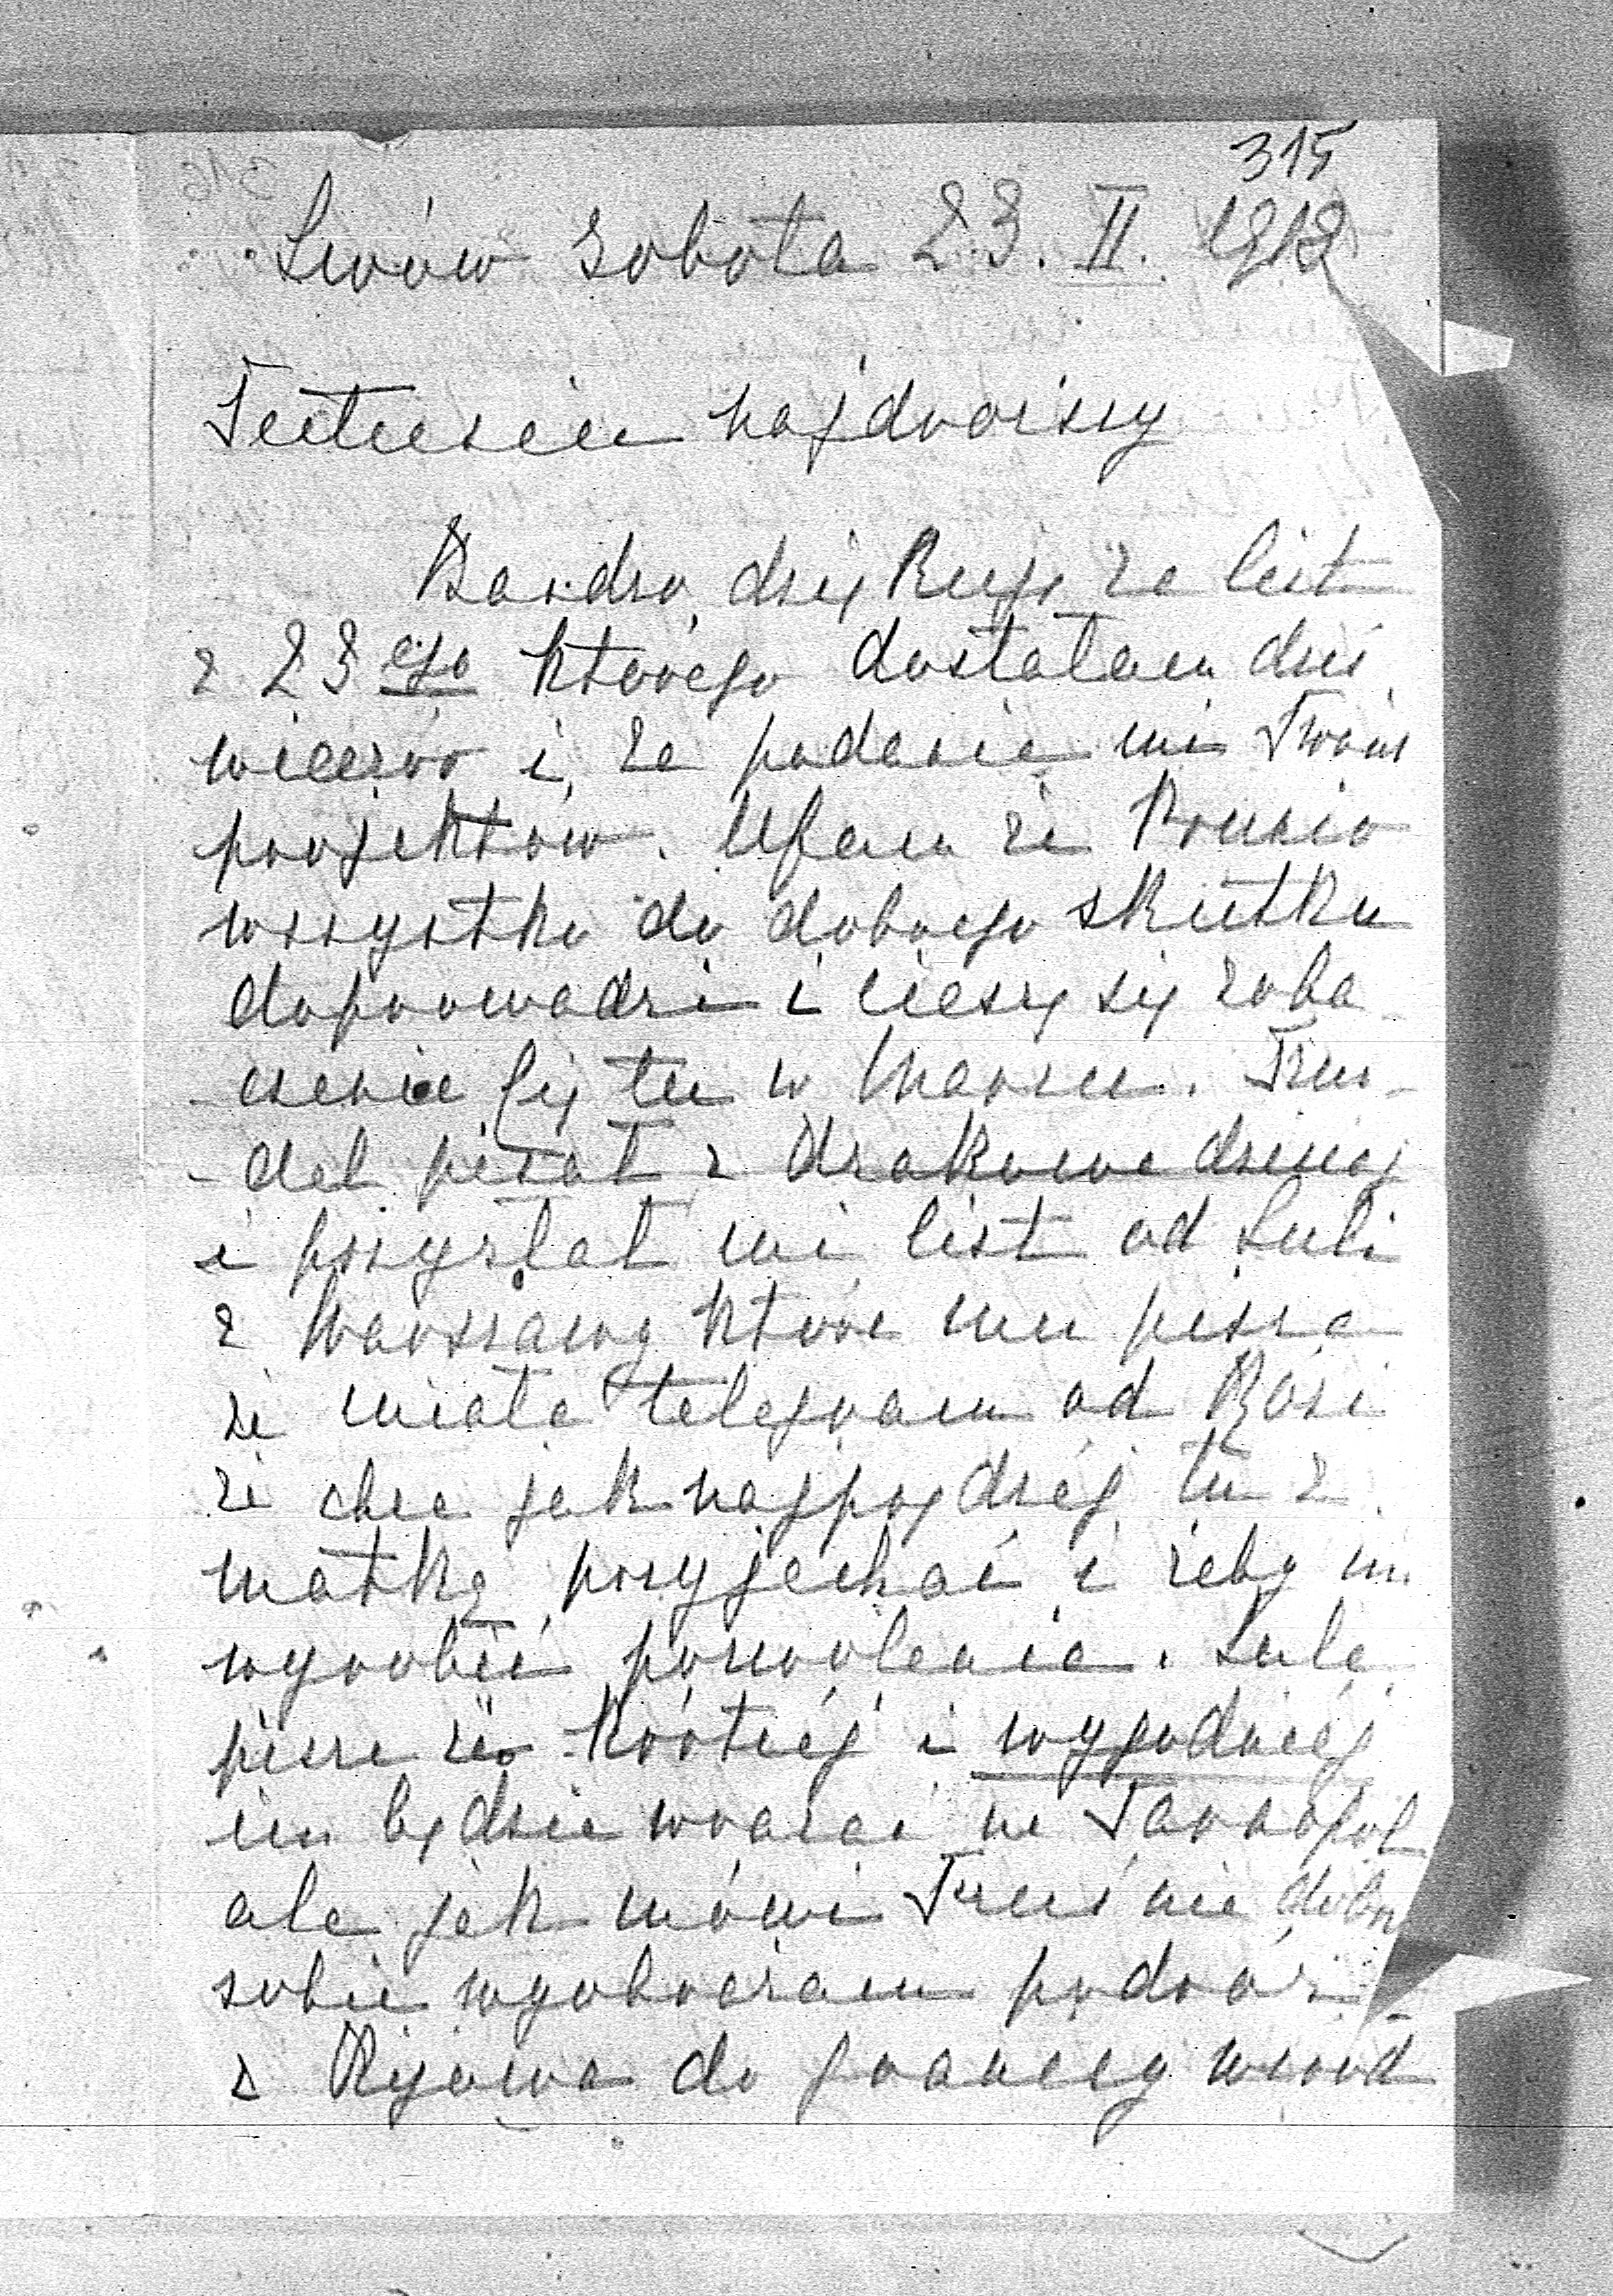 315
Lwów Sobota 23. II. 1918
Tutusiu najdroższy
Bardzo dziękuję za list
z 23 ego którego dostałam dziś
wieczór i za podanie mi Twoich
projektów. Ufam że Broncio
wszystko do dobrego skutku
doprowadzi i cieszę się zoba
czenie Cię tu w Marcu. Tru-
del pisał z Krakowa dzisiaj
i przysłał mi list od Luli
z Warszawy która mu pisze
że miała telegram od Rózi
że chce jak najprędzej tu z
matką przyjechać i żeby im
wyrobić pozwolenie. Lula
pisze że krótiej i wygodniej
im będzie wracać na Tarnopol
ale jak mówi Truś nie
sobie wyobrażam podróż
z Kijowa do granicy wśród